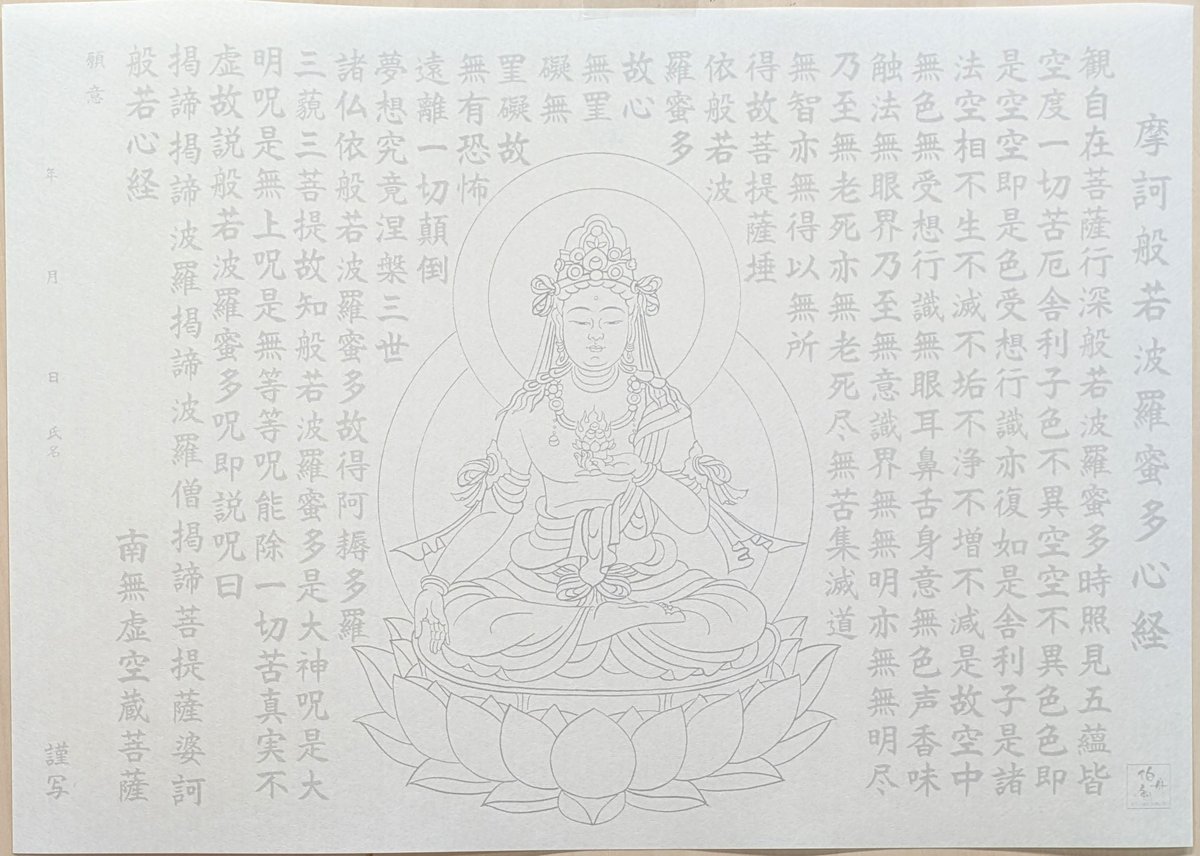 摩訶般若波羅蜜多心経
観自在菩薩行深般若波羅蜜多時照見五蘊皆
空度一切苦厄舎利子色不異空空不異色色即
是空空即是色受想行識亦復如是舎利子是諸
法空相不生不滅不垢不浄不増不減是故空中
無色無受想行識無眼耳鼻舌身意無色声香味
触法無眼界乃至無意識界無無明亦無無明尽
乃至無老死亦無老死尽無苦集滅道
無智亦無得以無所
得故菩提薩埵
依般若波
羅蜜多
故心
無罣
礙無
罣礙故
無有恐怖
遠離一切顛倒
夢想究竟涅槃三世
諸仏依般若波羅蜜多故得阿耨多羅
三藐三菩提故知般若波羅蜜多是大神呪是大
明呪是無上呪是無等等呪能除一切苦真実不
虚故説般若波羅蜜多呪即説呪曰
掲諦掲諦波羅掲諦波羅僧掲諦菩提薩婆訶
般若心経
南無虚空蔵菩薩
願意
年 月 日 氏名 謹写